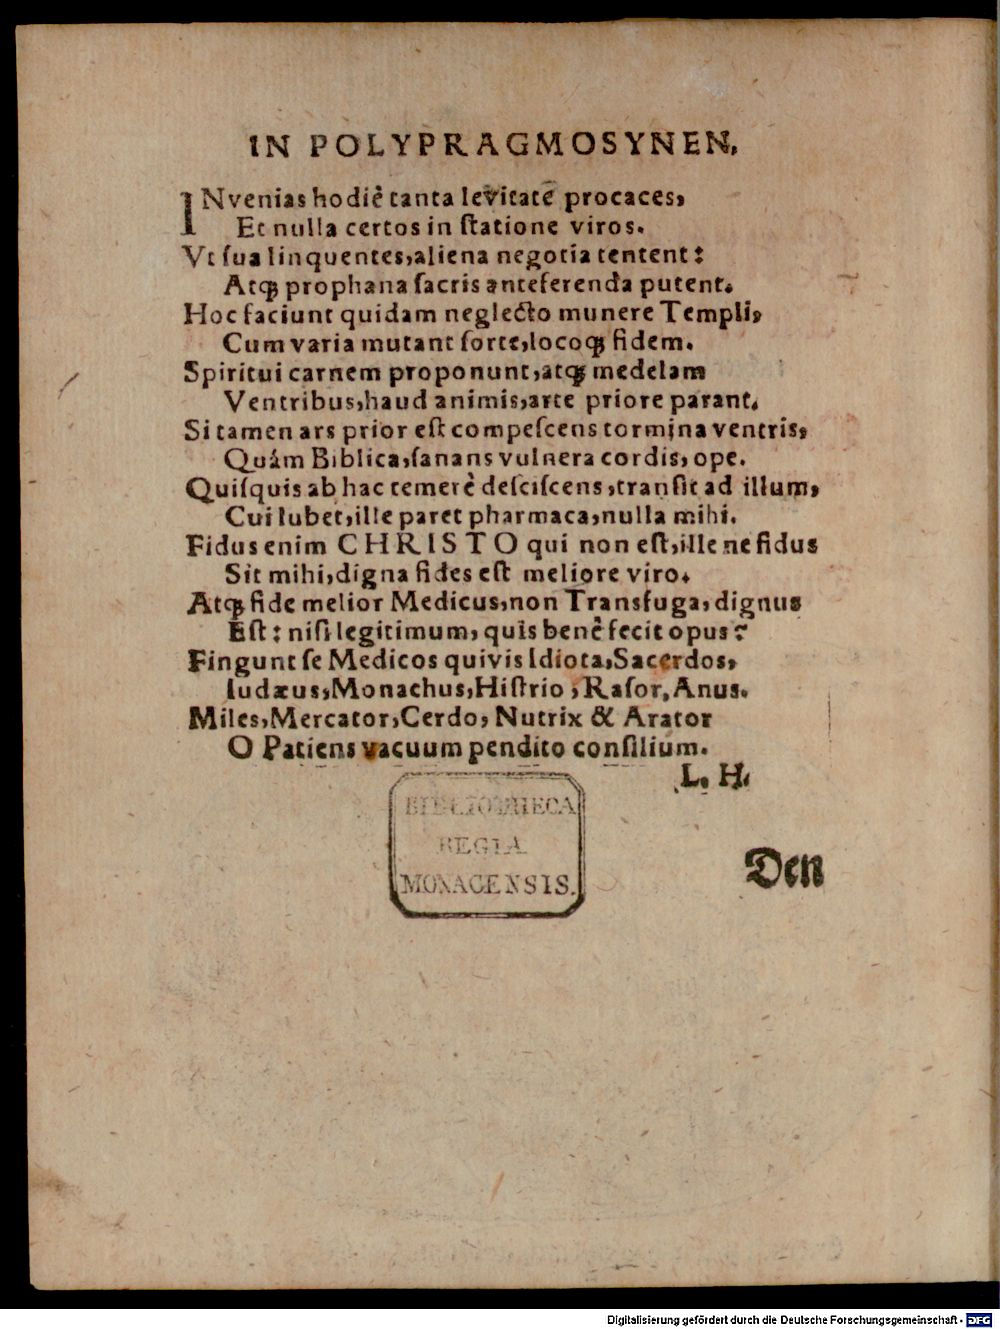 IN POLYPRAGMOSYNEN.
INvenias hodiè tanta levitate procaces,
Et nulla certos in ſtatione viros.
Vt ſua linquentes, aliena negotia tentent:
Atq; prophana ſacris anteferenda putent.
Hoc faciunt quidam neglecto munere Templi,
Cum varia mutant ſorte, locoq; fidem.
Spiritui carnem proponunt, atq; medelam
Ventribus, haud animis, arte priore parant.
Si tamen ars prior eſt compeſcens tormina ventris,
Quám Biblica, ſanans vulnera cordis, ope.
Quiſquis ab hac temerè deſciſcens, tranſit ad illum,
Cui lubet, ille paret pharmaca, nulla mihi.
Fidus enim CHRISTO qui non eſt, ille ne fidus
Sit mihi, digna fides eſt meliore viro.
Atq; fide melior Medicus, non Transfuga, dignus
Eſt: niſi legitimum, quis benè fecit opus?
Fingunt ſe Medicos quivis Idiota, Sacerdos,
Iudæus, Monachus, Hiſtrio, Raſor, Anus.
Miles, Mercator, Cerdo, Nutrix & Arator
O Patiens vacuum pendito conſilium.
L. H.
BIBLIOTHECA
REGIA
MONACENSIS.
Den
Digitalisierung gefördert durch die Deutsche Forschungsgemeinschaft - DFG